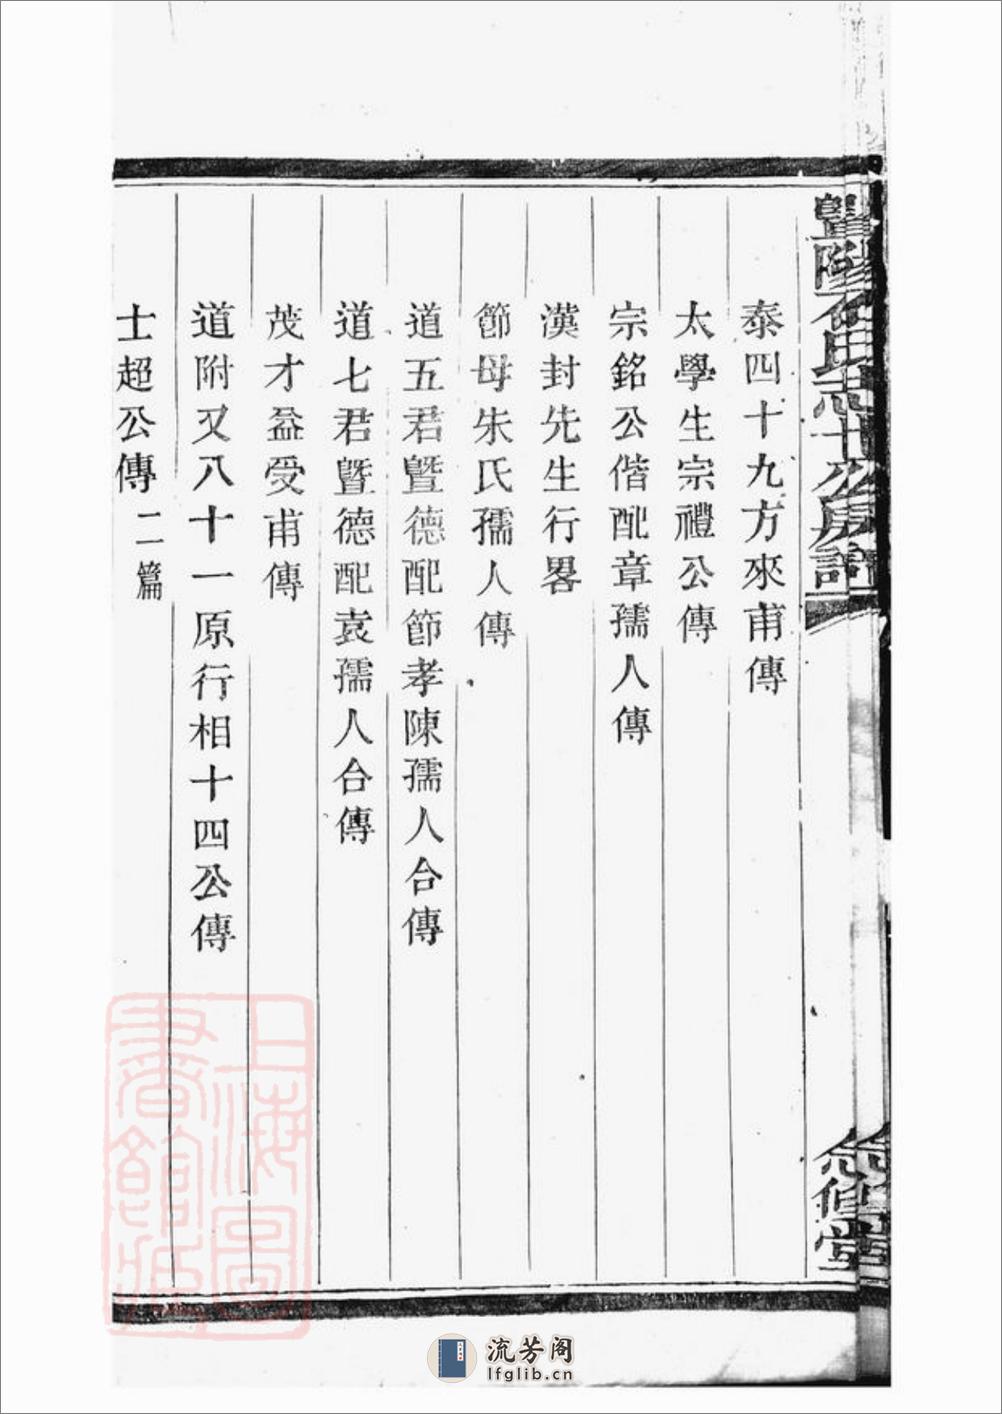 暨陽石氏志十公房譜
泰四十九方來甫傳
太學生宗禮公傳
宗銘公偕配章孺人傳
漢封先生行畧
節母朱氏孺人傳
道五君暨德配節孝陳孺人合傳
道七君暨德配袁孺人合傳
茂才益受甫傳
道附又八十一原行相十四公傳
士超公傳 二篇
修堂
上海圖
書館藏
流芳阁
lfglib.cn